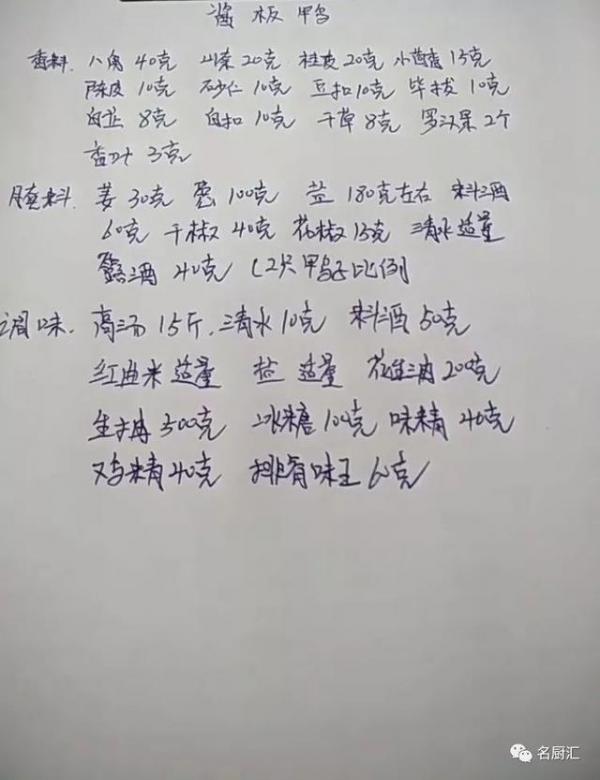 酱板鸭
香料. 八角40克 山柰20克 桂皮20克 小茴香15克
陈皮10克 砂仁10克 豆扣10克 毕拔10克
白芷8克 白扣10克 干草8克 罗汉果2个
香叶3克
腌料. 姜30克 葱100克 盐180克左右 料酒
60克 干椒40克 花椒15克 清水适量
露酒40克 (2只鸭子比例
调味. 高汤15斤. 清水10克 料酒50克
红曲米适量 盐适量 花生油200克
生抽300克 冰糖100克 味精40克
鸡精40克 排骨味王60克
名厨汇